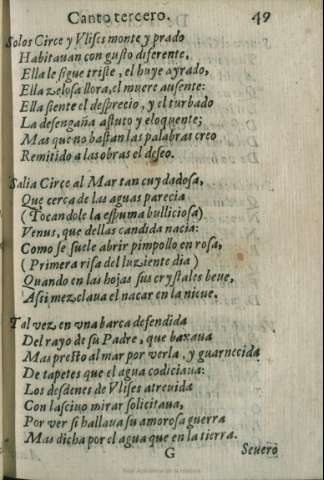 Canto tercero. 49
Solos Circe y Vlises monte y prado
Habitauan con gusto diferente,
Ella le sigue triste, el huye ayrado,
Ella zelosa llora, el muere ausente:
Ella siente el desprecio, y el turbado
La desengaña astuto y eloquente;
Mas que no bastan las palabras creo
Remitido a las obras el deseo.
Salia Circe al Mar tan cuydadosa,
Que cerca de las aguas parecia
(Tocandole la espuma bulliciosa)
Venus, que dellas candida nacia:
Como se suele abrir pimpollo en rosa,
(Primera risa del luziente dia)
Quando en las hojas sus crystales beue,
Assi mezclaua el nacar en la nieue.
Tal vez en vna barca defendida
Del rayo de su Padre, que baxaua
Mas presto al mar por verla, y guarnecida
De tapetes que el agua codiciaua:
Los desdenes de Vlises atreuida
Con lasciuo mirar solicitaua,
Por ver si hallaua su amorosa guerra
Mas dicha por el agua que en la tierra.
G Seuero
Real Academia de la Historia